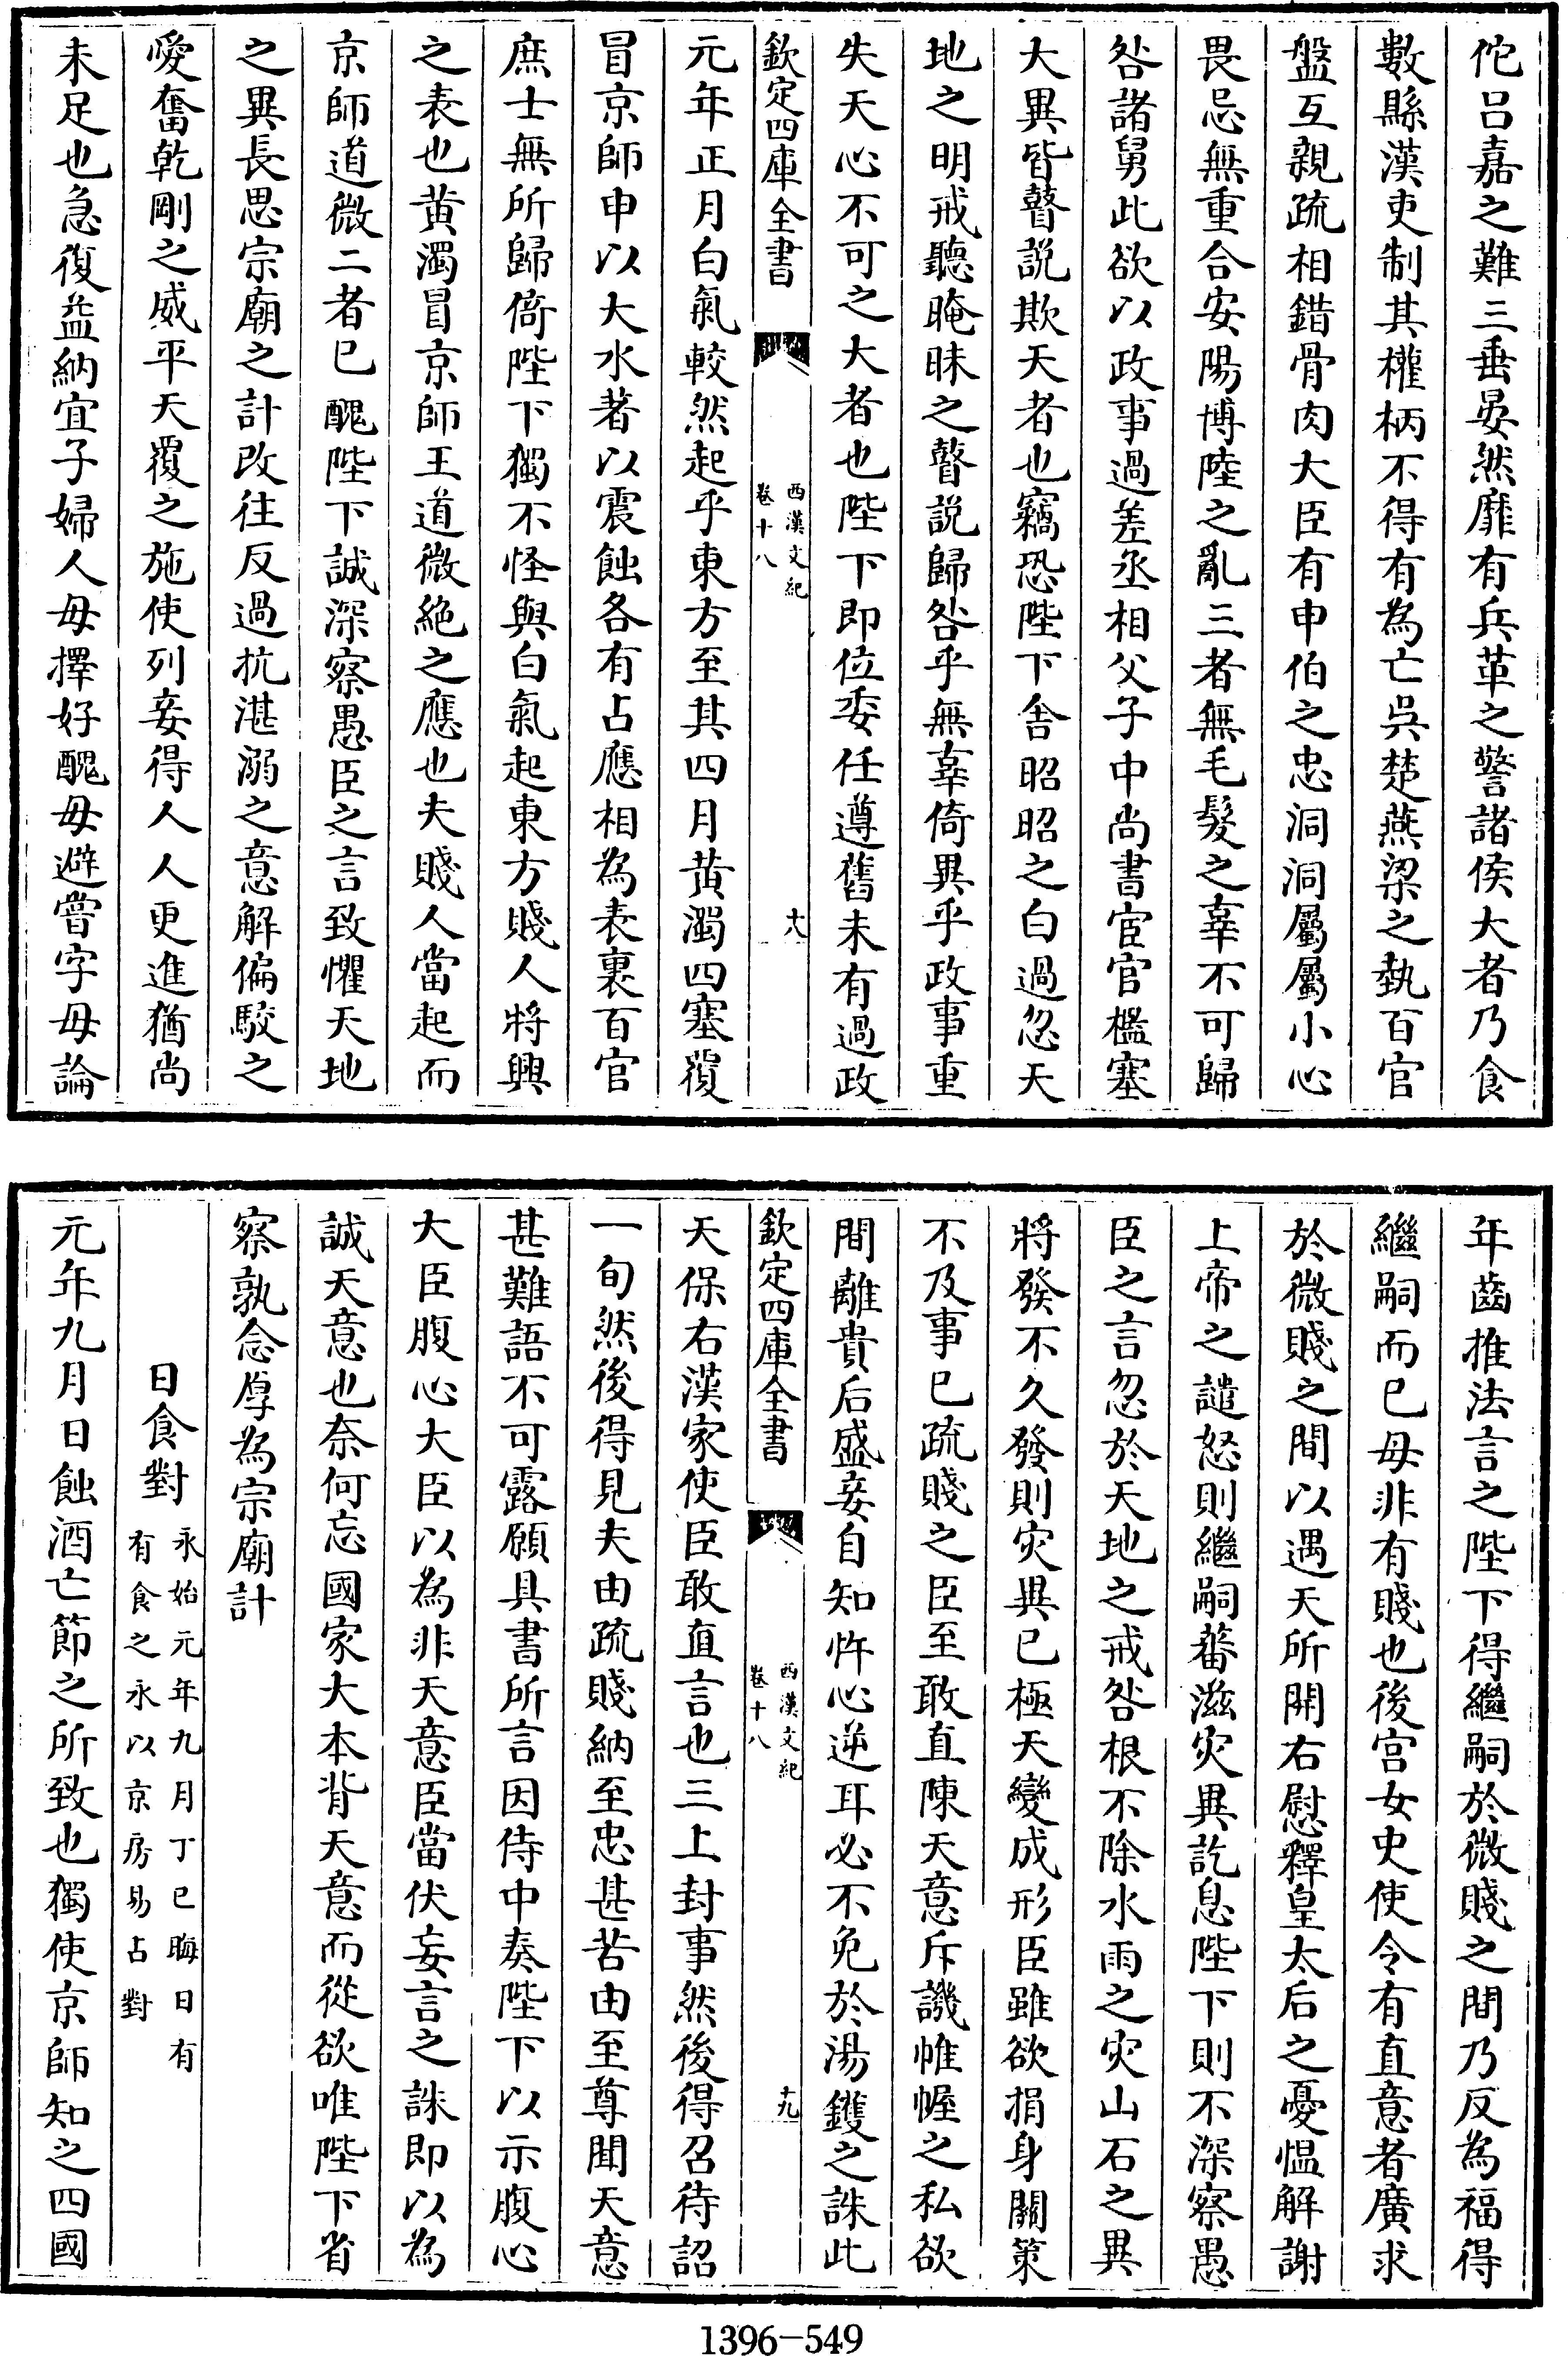 佗呂嘉之難三垂晏然靡有兵革之警諸侯大者乃食
數縣漢吏制其權柄不得有為亡吳楚燕梁之埶百官
盤互親疏相錯骨肉大臣有申伯之忠洞洞屬屬小心
畏忌無重合安陽博陸之亂三者無毛髮之辜不可歸
咎諸舅此欲以政事過差丞相父子中尚書宦官檻塞
大異皆瞽説欺天者也竊恐陛下舍昭昭之白過忽天
地之明戒聽晻昧之瞽説歸咎乎無辜倚異乎政事重
失天心不可之大者也陛下即位委任遵舊未有過政
欽定四庫全書
西漢文紀
卷十八
十八
元年正月白氣較然起乎東方至其四月黄濁四塞覆
冒京師申以大水著以震蝕各有占應相為表裏百官
庶士無所歸倚陛下獨不怪與白氣起東方賤人將興
之表也黄濁冒京師王道微絶之應也夫賤人當起而
京師道微二者已醜陛下誠深察愚臣之言致懼天地
之異長思宗廟之計改往反過抗湛溺之意解偏駮之
愛奮乾剛之威平天覆之施使列妾得人人更進猶尚
未足也急復益納宜子婦人毋擇好醜毋避嘗字毋論
年齒推法言之陛下得繼嗣於微賤之間乃反為福得
繼嗣而已毋非有賤也後宫女史使令有直意者廣求
於微賤之間以遇天所開右慰釋皇太后之憂愠解謝
上帝之譴怒則繼嗣蕃滋灾異訖息陛下則不深察愚
臣之言忽於天地之戒咎根不除水雨之灾山石之異
將發不久發則灾異已極天變成形臣雖欲捐身關策
不及事已疏賤之臣至敢直陳天意斥譏帷幄之私欲
間離貴后盛妾自知忤心逆耳必不免於湯鑊之誅此
欽定四庫全書
西漢文紀
卷十八
十九
天保右漢家使臣敢直言也三上封事然後得召待詔
一旬然後得見夫由疏賤納至忠甚苦由至尊聞天意
甚難語不可露願具書所言因侍中奏陛下以示腹心
大臣腹心大臣以為非天意臣當伏妄言之誅即以為
誠天意也奈何忘國家大本背天意而從欲唯陛下省
察孰念厚為宗廟計
日食對
永始元年九月丁巳晦日有
有食之永以京房易占對
元年九月日蝕酒亡節之所致也獨使京師知之四國
1396-549